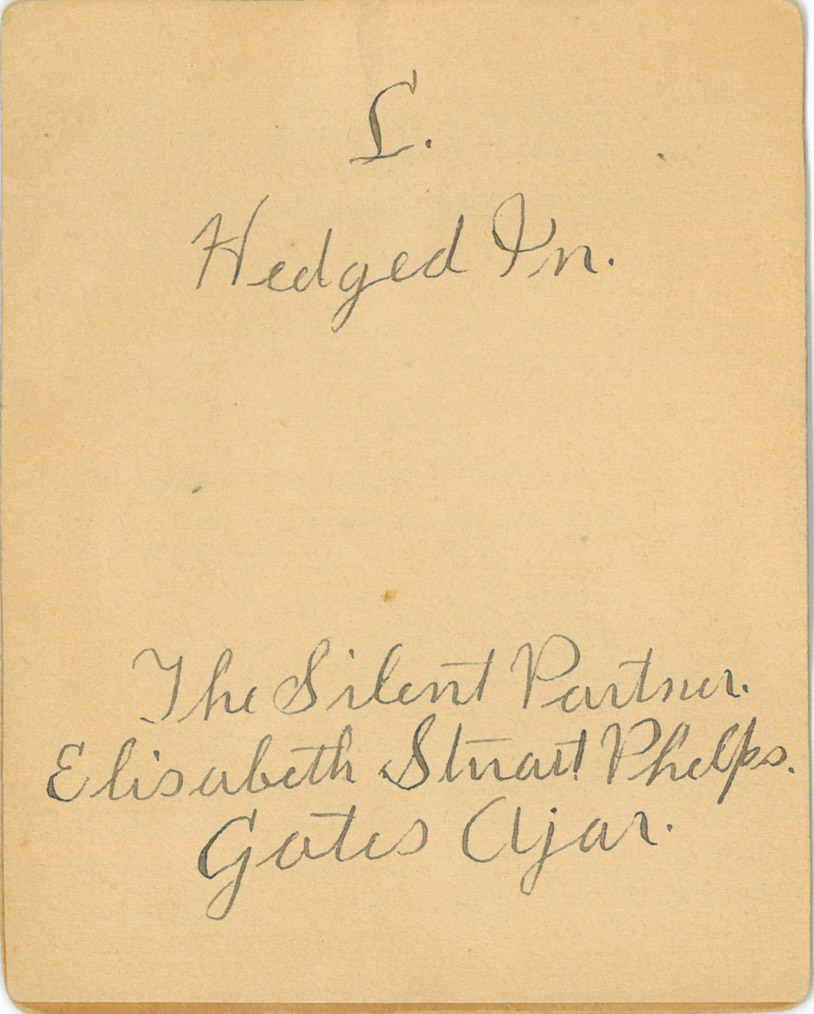 L.
Hedged In.
The Silent Partner.
Elisabeth Stuart Phelps.
Gates Ajar.